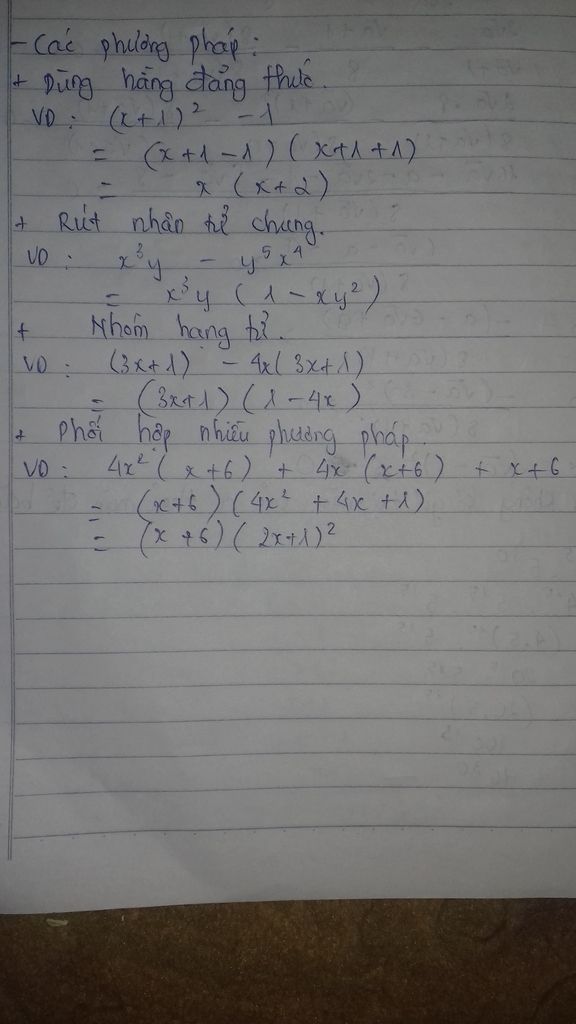 - Các phương pháp:
+ Dùng hằng đẳng thức.
VD: (x+1)² - 1
= (x+1-1)(x+1+1)
= x(x+2)
+ Rút nhân tử chung.
VD: x³y - y⁵x⁴
= x³y(1-xy²)
+ Nhóm hạng tử.
VD: (3x+1) - 4x(3x+1)
= (3x+1)(1-4x)
+ Phối hợp nhiều phương pháp.
VD: 4x²(x+6) + 4x(x+6) + x+6
= (x+6)(4x²+4x+1)
= (x+6)(2x+1)²